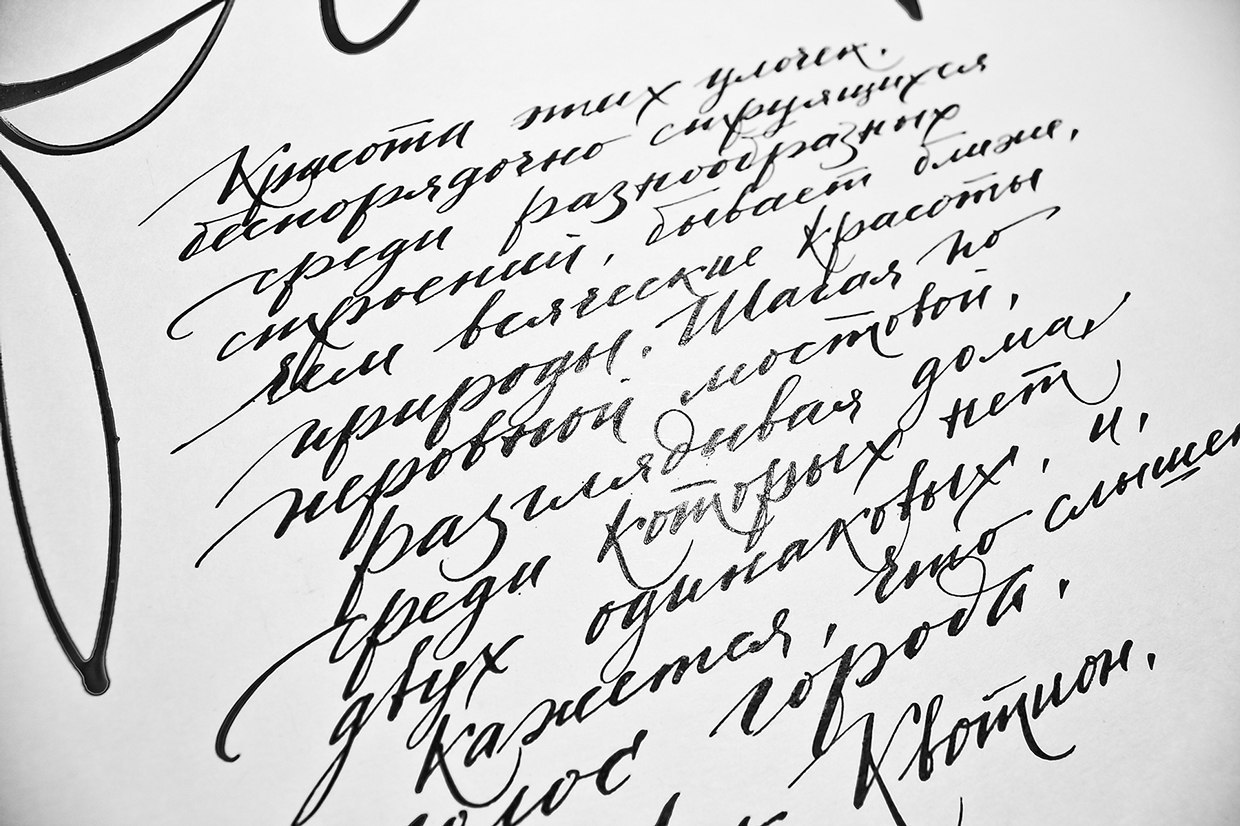 Красота этих улочек,
беспорядочно струящихся
среди разнообразных
строений, бывает ближе,
чем всяческие красоты
природы. Шагая по
неровной мостовой,
разглядывая дома,
среди которых нет
двух одинаковых, и,
кажется, что слышен
голос города.
Квотион.